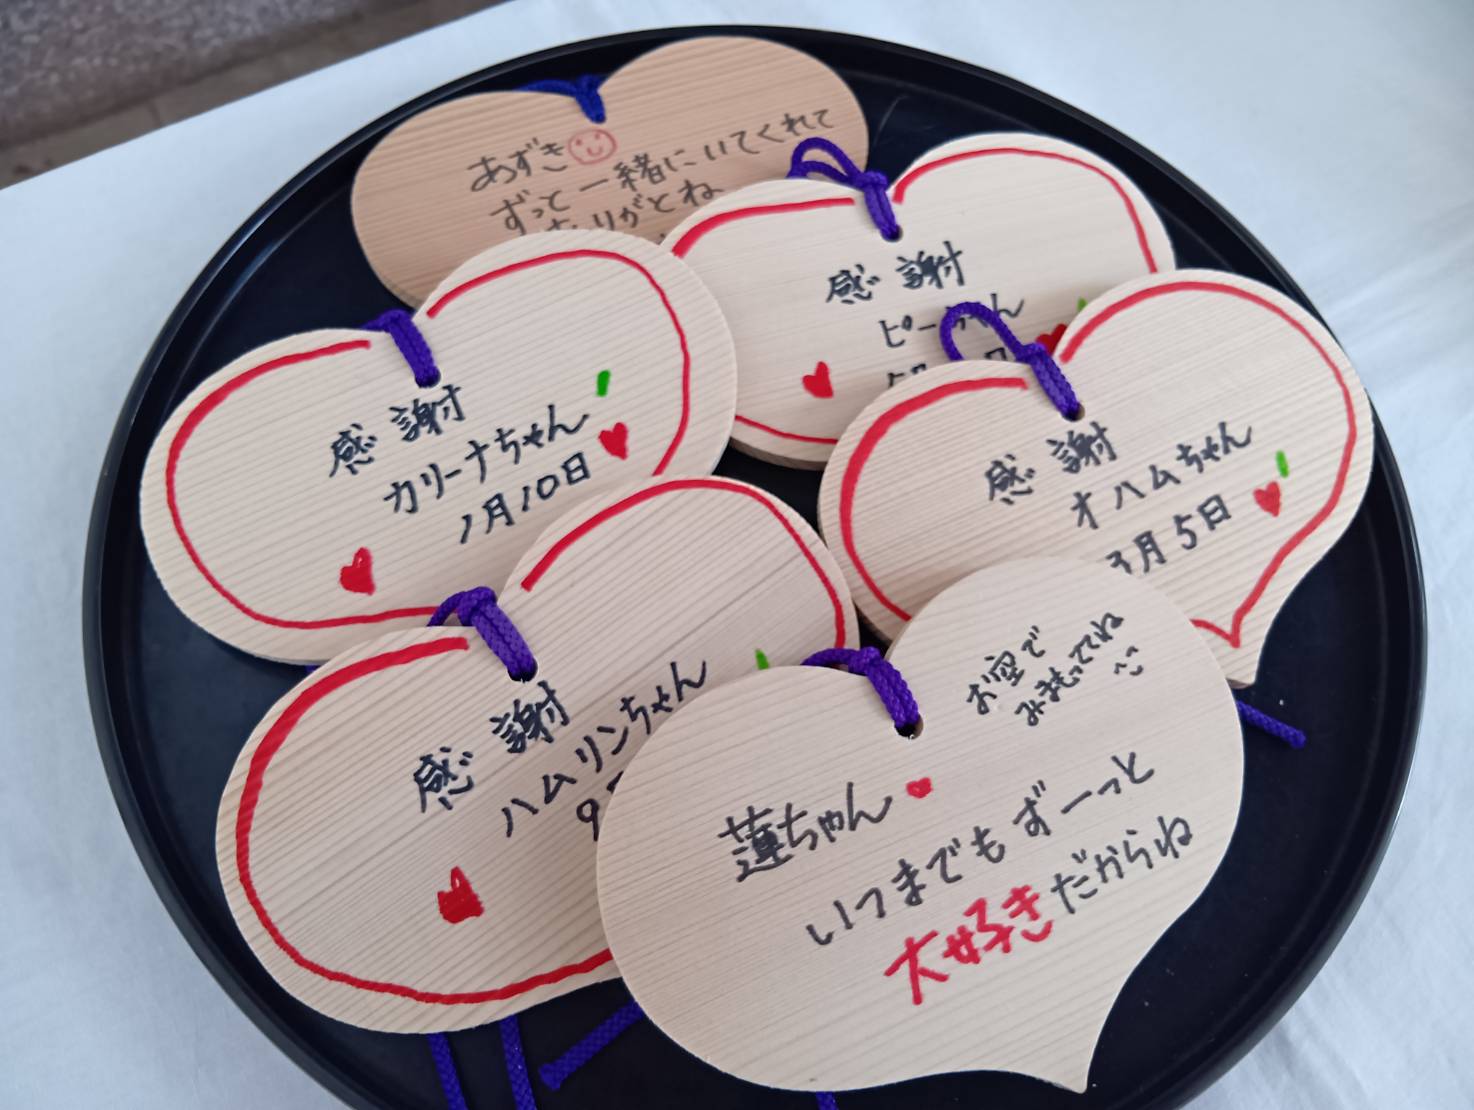 あずき
ずっと一緒にいてくれて
ありがとね
感謝
ピーちゃん
感謝
カリーナちゃん
1月10日
感謝
オハムちゃん
3月5日
感謝
ハムリンちゃん
9
お空で
みまもっててね
蓮ちゃん
いつまでもずーっと
大好きだからね